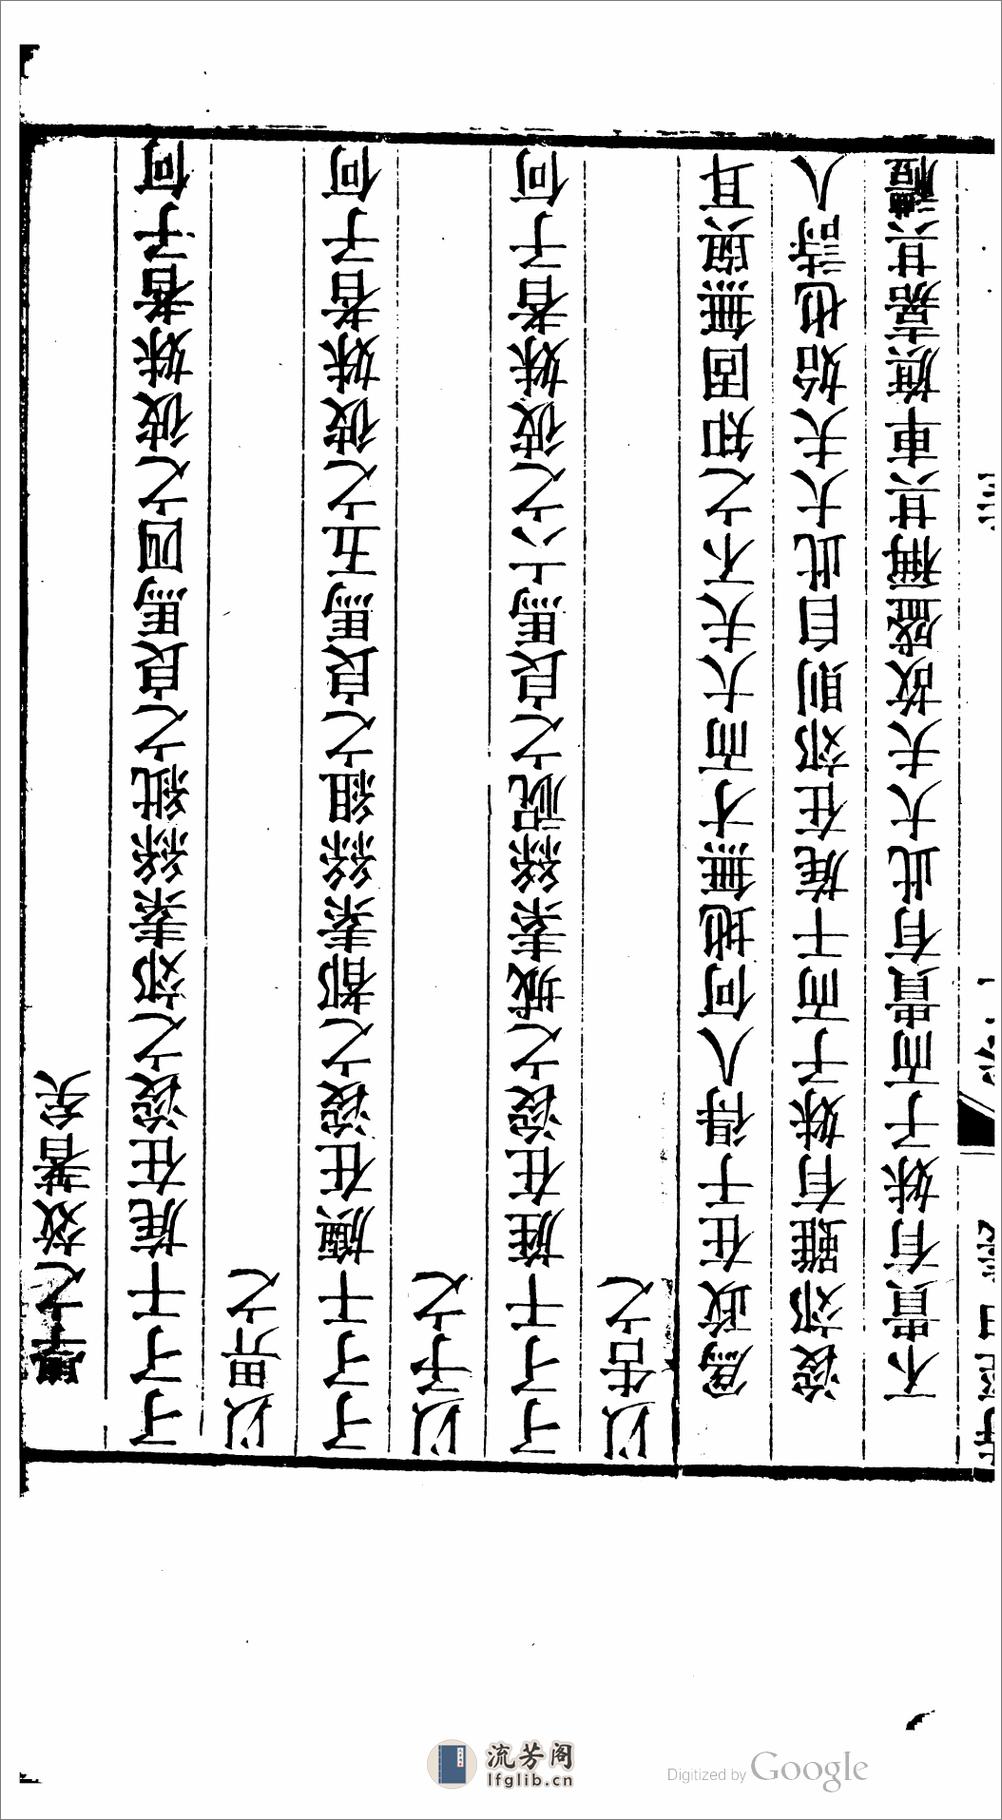 學之效著矣
孑孑干旄在浚之郊素絲紕之良馬四之彼姝者子何
以畀之
孑孑干旟在浚之都素絲組之良馬五之彼姝者子何
以予之
孑孑干旌在浚之城素絲祝之良馬六之彼姝者子何
以告之
為政在于得人何地無才而大夫不之知固無與耳
浚郊雖有姝子而干旄在郊則自此大夫始也詩人
不貴有姝子而貴有此大夫故盛稱其車旗嘉其禮
流芳阁
lfglib.cn
Digitized by Google